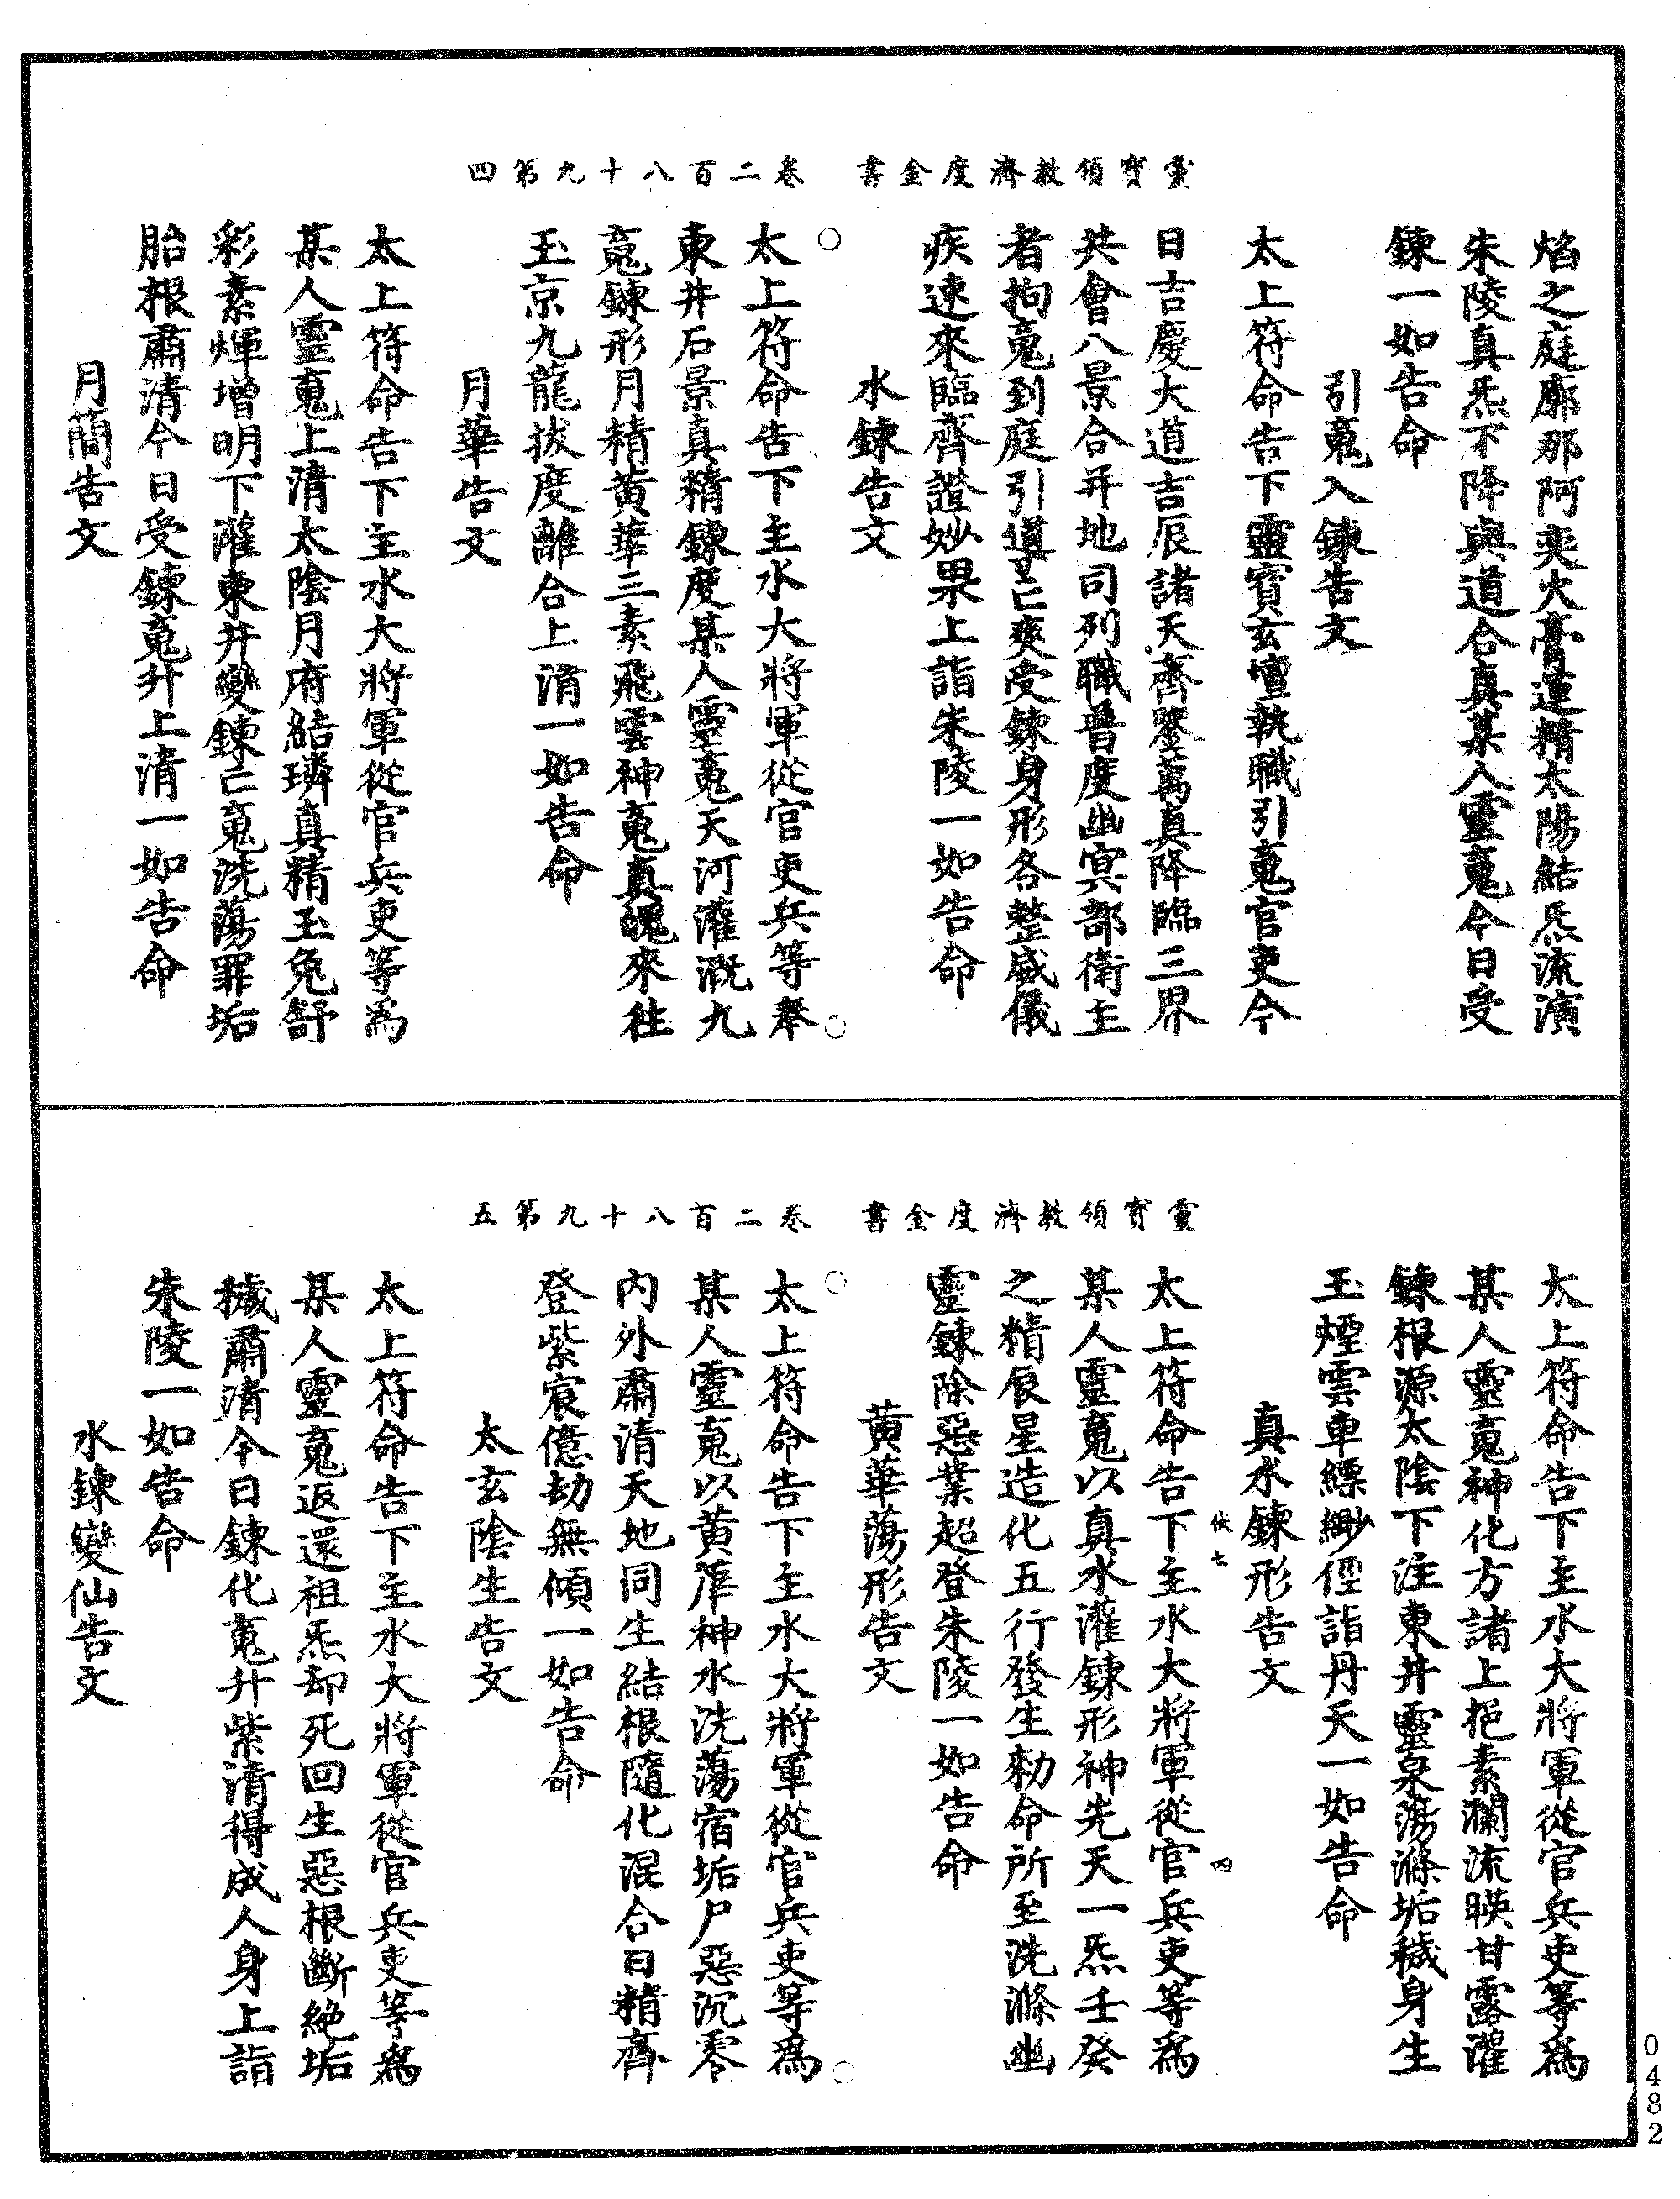 靈寶領教濟度金書　卷二百八十九第四
焰之庭廓那阿奕火膏運精太陽結炁流演
朱陵真炁下降與道合真某人靈䰟今日受
鍊一如告命
引䰟入鍊告文
太上符命告下靈寳玄壇執職引䰟官吏今
日吉慶大道吉辰諸天齊慶萬真降臨三界
共會八景合并地司列職普度幽冥部衛主
者拘䰟到庭引導亡爽受鍊身形各整威儀
疾速來臨齊證妙果上詣朱陵一如告命
水鍊告文
太上符命告下主水大將軍從官吏兵等奉
東井石景真精鍊度某人靈䰟天河灌溉九
䰟鍊形月精黄華三素飛雲神䰟真魄來往
玉京九龍拔度離合上清一如告命
月華告文
太上符命告下主水大將軍從官兵吏等為
某人靈䰟上清太陰月府結璘真精玉兔舒
彩素煇增明下灌東井變鍊亡䰟洗蕩罪垢
胎根肅清今日受鍊䰟升上清一如告命
月簡告文
靈寶領教濟度金書　卷二百八十九第五
太上符命告下主水大將軍從官兵吏等為
某人靈䰟神化方諸上挹素瀾流暎甘露灌
鍊根源太陰下注東井靈泉蕩滌垢穢身生
玉煙雲車縹緲徑詣丹天一如告命
真水鍊形告文
俠七　四
太上符命告下主水大將軍從官兵吏等為
某人靈䰟以真水灌鍊形神先天一炁壬癸
之精辰星造化五行發生勑命所至洗滌幽
靈鍊除惡業超登朱陵一如告命
黄華蕩形告文
太上符命告下主水大將軍從官兵吏等為
某人靈䰟以黄華神水洗蕩宿垢尸惡沉零
内外肅清天地同生結根隨化混合日精齊
登紫宸億劫無傾一如告命
太玄陰生告文
太上符命告下主水大將軍從官兵吏等為
某人靈䰟返還祖炁却死回生惡根斷絶垢
穢肅清今日鍊化䰟升紫清得成人身上詣
朱陵一如告命
水鍊變仙告文
0482